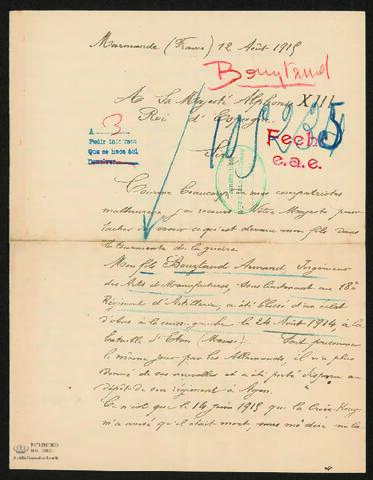 Marmande (France) 12 Août 1915
Bouytaud
A Sa Majesté Alphonse XIII
Roi d'Espagne
Sire
A 3
Pedir informes
Fecho
e.a.e.
Comme beaucoup de mes compatriotes
malheureux j'ai recours Votre Majesté pour
tacher de savoir ce qu'est devenu mon fils dans
la tourmente de la guerre
Mon fils Bouytaud Armand Ingénieur
des Arts et Manufactures, Sous-lieutenant au 18e
Régiment d'Artillerie, a été blessé d'un éclat
d'obus à la cuisse gauche le 24 Août 1914, à la
bataille d'Eton (Meuse). Fait prisonnier
le même jour par les Allemands, il n'a plus
donné de ses nouvelles et a été porté disparu au
dépôt de son régiment à Agen.
Ce n'est que le 14 juin 1915 que la Croix-Rouge
m'a avisé qu'il était mort, sans me dire ni la
PATRIMONIO
NACIONAL